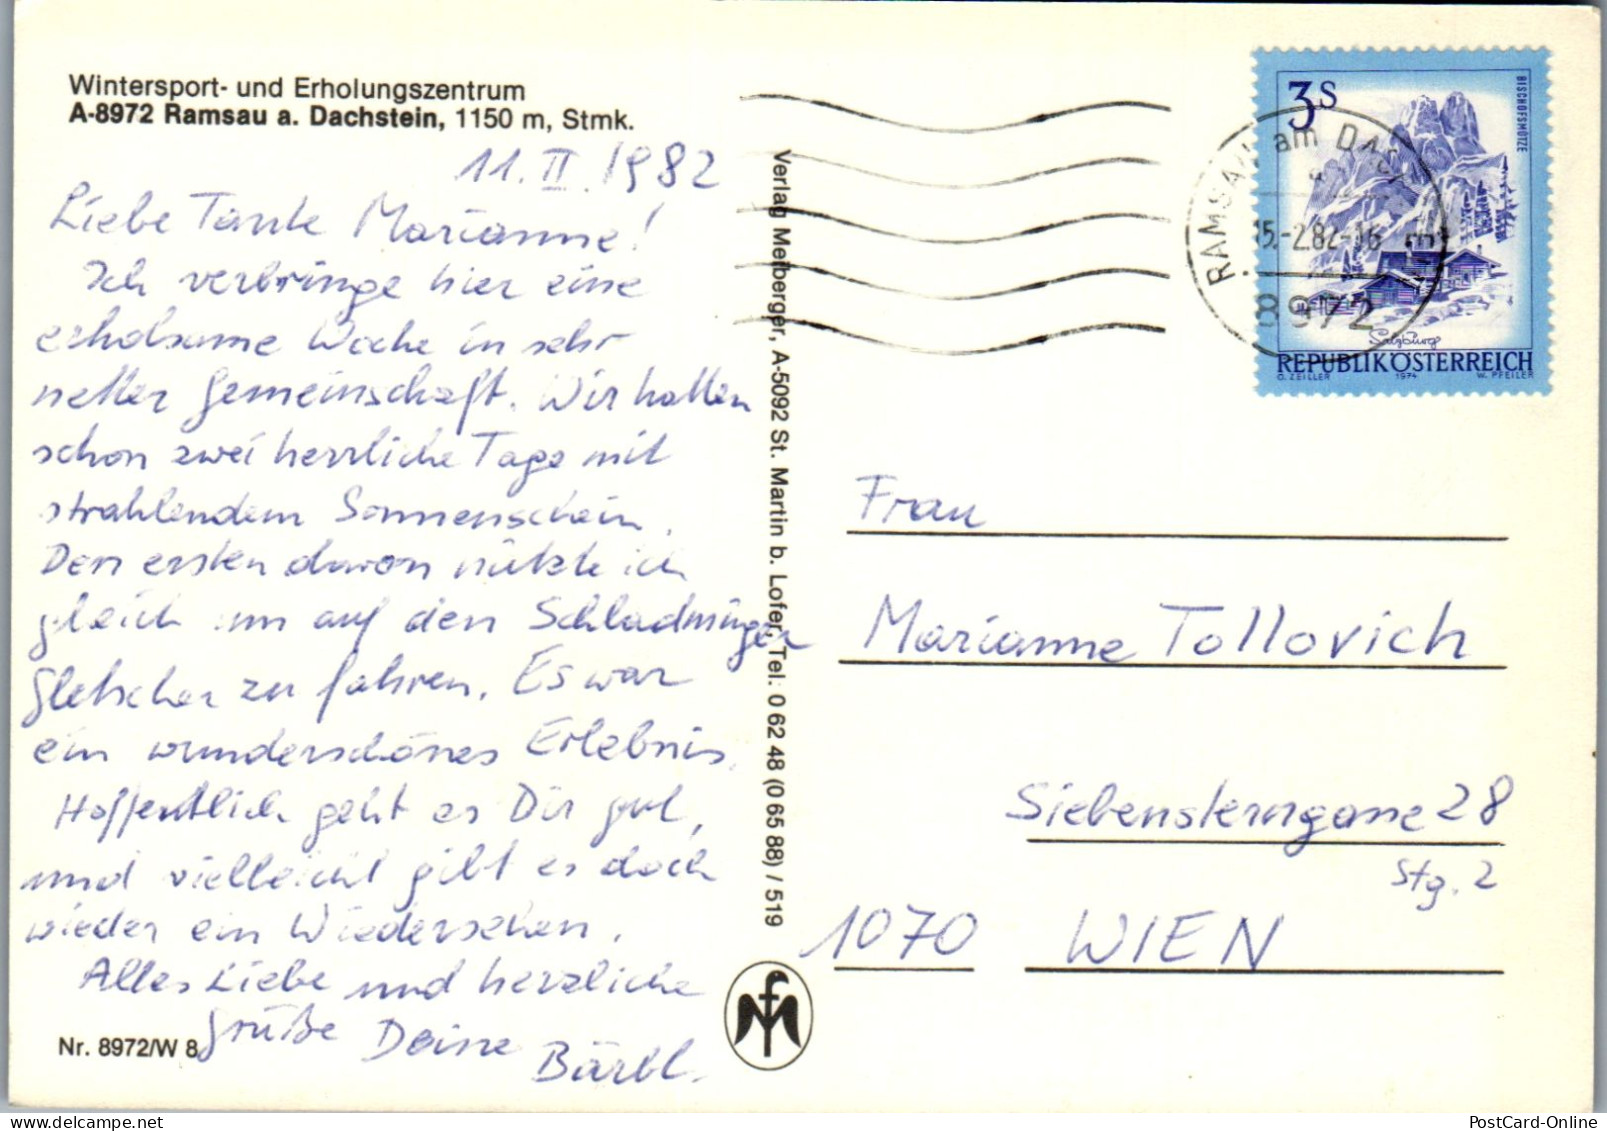 Wintersport- und Erholungszentrum
A-8972 Ramsau a. Dachstein, 1150 m, Stmk.
11. II. 1982
Liebe Tante Marianne!
Ich verbringe hier eine
erholsame Woche in sehr
netter Gemeinschaft. Wir hatten
schon zwei herrliche Tage mit
strahlendem Sonnenschein.
Den ersten davon nützte ich
gleich um auf den Schladminger
Gletscher zu fahren. Es war
ein wunderschönes Erlebnis.
Hoffentlich geht es Dir gut,
und vielleicht gibt es doch
wieder ein Wiedersehen.
Alles Liebe und herzliche
Grüße Deine
Bärbl.
Nr. 8972/W 8
Verlag Meiberger, A-5092 St. Martin b. Lofer, Tel. 0 62 48 (0 65 88) / 519
3 S
BISCHOFSMÜTZE
Salzburg
REPUBLIK ÖSTERREICH
O. ZEILLER 1974 W. PFEILER
RAMSAU am DACH
15.-2.82-16
8972
Frau
Marianne Tollovich
Siebensterngasse 28
Stg. 2
1070 WIEN
PostCard-Online